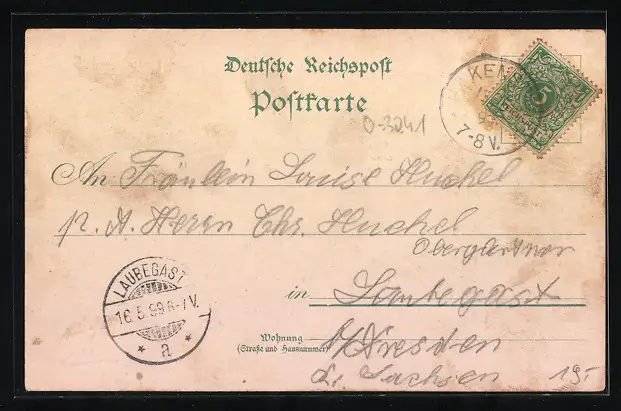 Deutsche Reichspost
Postkarte
O-3241
KEM
7-8 V.
5
An Fräulein Louise Huckel
p. A. Herrn Chr. Huckel
Obergärtner
in Laubegast
Wohnung
(Straße und Hausnummer)
b/Dresden
i. Sachsen
19.-
LAUBEGAST
16.5.99 6-7 V.
* a *